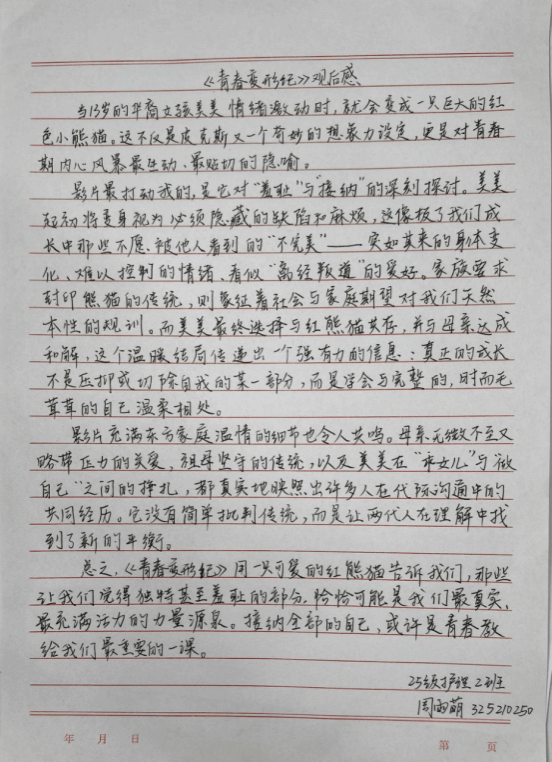 《青春变形纪》观后感
当13岁的华裔女孩美美情绪激动时，就会变成一只巨大的红
色小熊猫。这不仅是皮克斯又一个奇妙的想象力设定，更是对青春
期内心风暴最生动、最贴切的隐喻。
影片最打动我的，是它对“羞耻”与“接纳”的深刻探讨。美美
起初将变身视为必须隐藏的缺陷和麻烦，这像极了我们成
长中那些不愿被他人看到的“不完美”——突如其来的身体变
化、难以控制的情绪、看似“离经叛道”的爱好。家族要求
封印熊猫的传统，则象征着社会与家庭期望对我们天然
本性的规训。而美美最终选择与红熊猫共存，并与母亲达成
和解，这个温暖结局传递出一个强有力的信息：真正的成长
不是压抑或切除自我的某一部分，而是学会与完整的，时而毛
茸茸的自己温柔相处。
影片充满东方家庭温情的细节也令人共鸣。母亲无微不至又
略带压力的关爱，祖母坚守的传统，以及美美在“乖女儿”与“做
自己”之间的挣扎，都真实地映照出许多人在代际沟通中的
共同经历。它没有简单批判传统，而是让两代人在理解中找
到了新的平衡。
总之，《青春变形纪》用一只可爱的红熊猫告诉我们，那些
让我们觉得独特甚至羞耻的部分，恰恰可能是我们最真实、
最充满活力的力量源泉。接纳全部的自己，或许是青春教
给我们最重要的一课。
25级护理2班
周雨萌 325210250
年 月 日
第 页